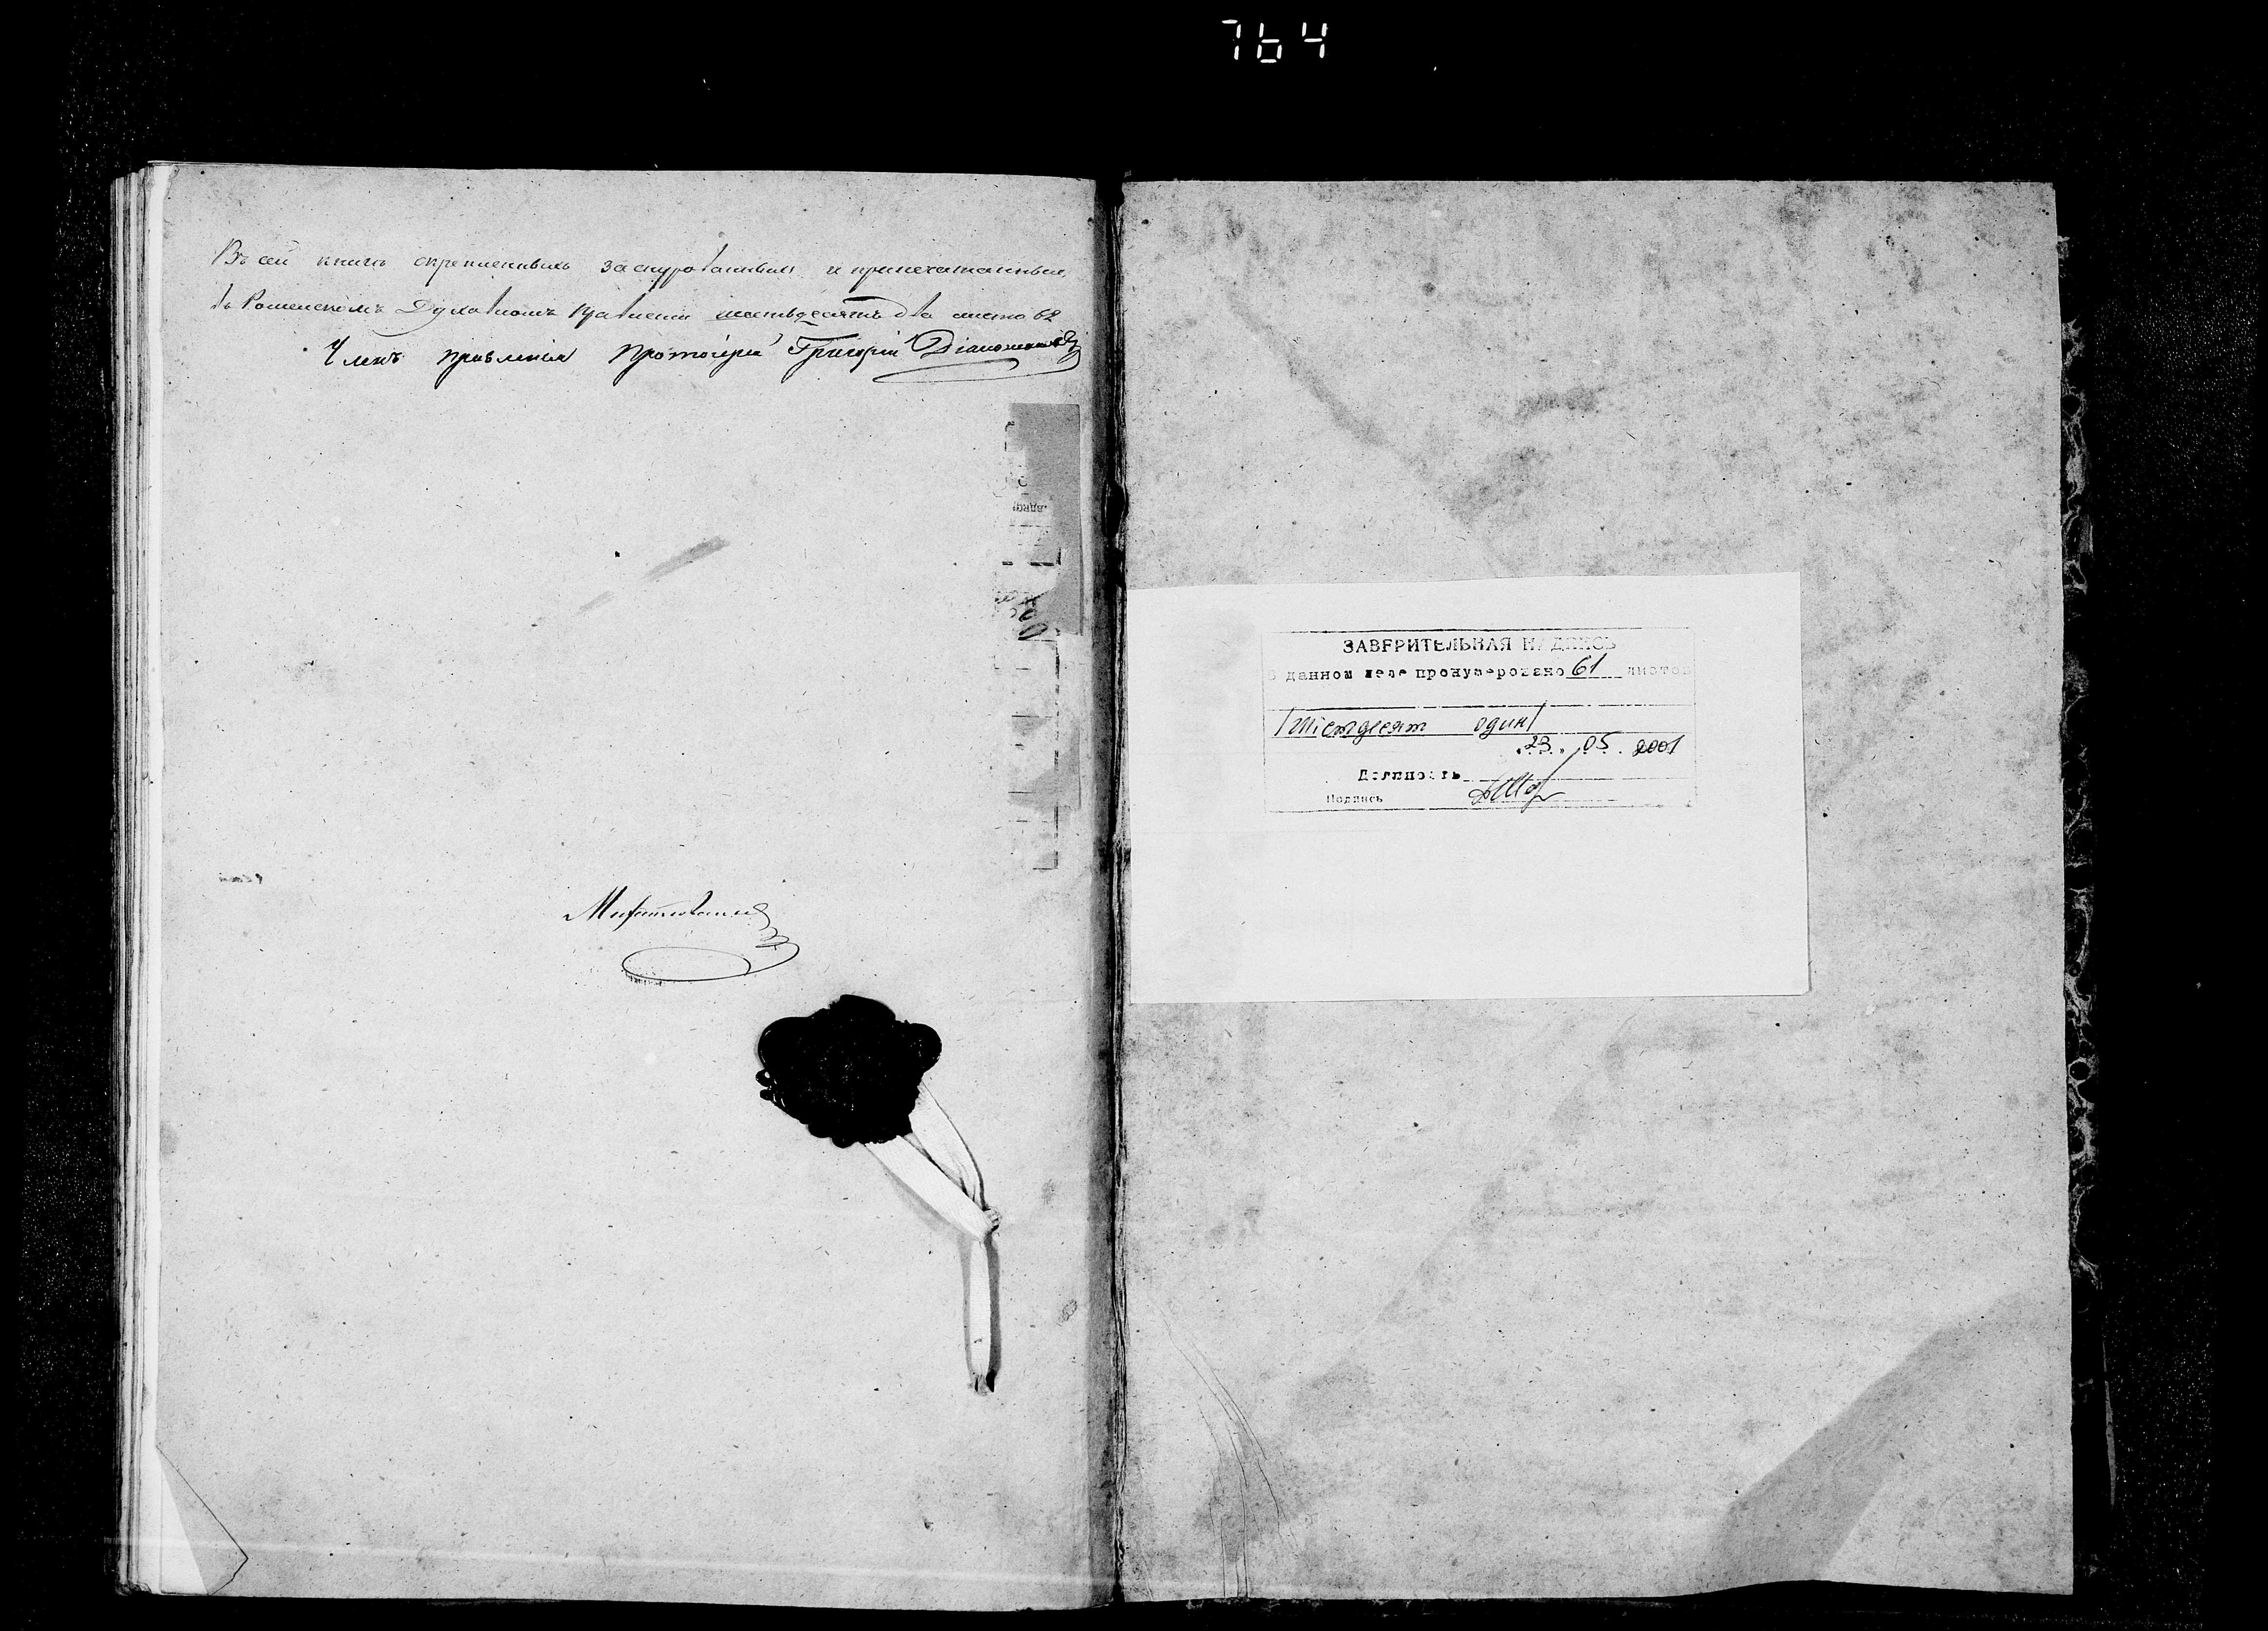 764
Въ сей книгѣ скрепленныхъ зашнурованныхъ и припечатанныхъ
въ Роменскомъ Духовномъ Правленіи шестьдесятъ два листа 62
Членъ правленія протоіерей Григорій
ЗАВЕРИТЕЛЬНАЯ НАДПИСЬ
В данном деле пронумеровано 61 листов
/шістдесят один/
23. 05. 2001
Должность
Подпись